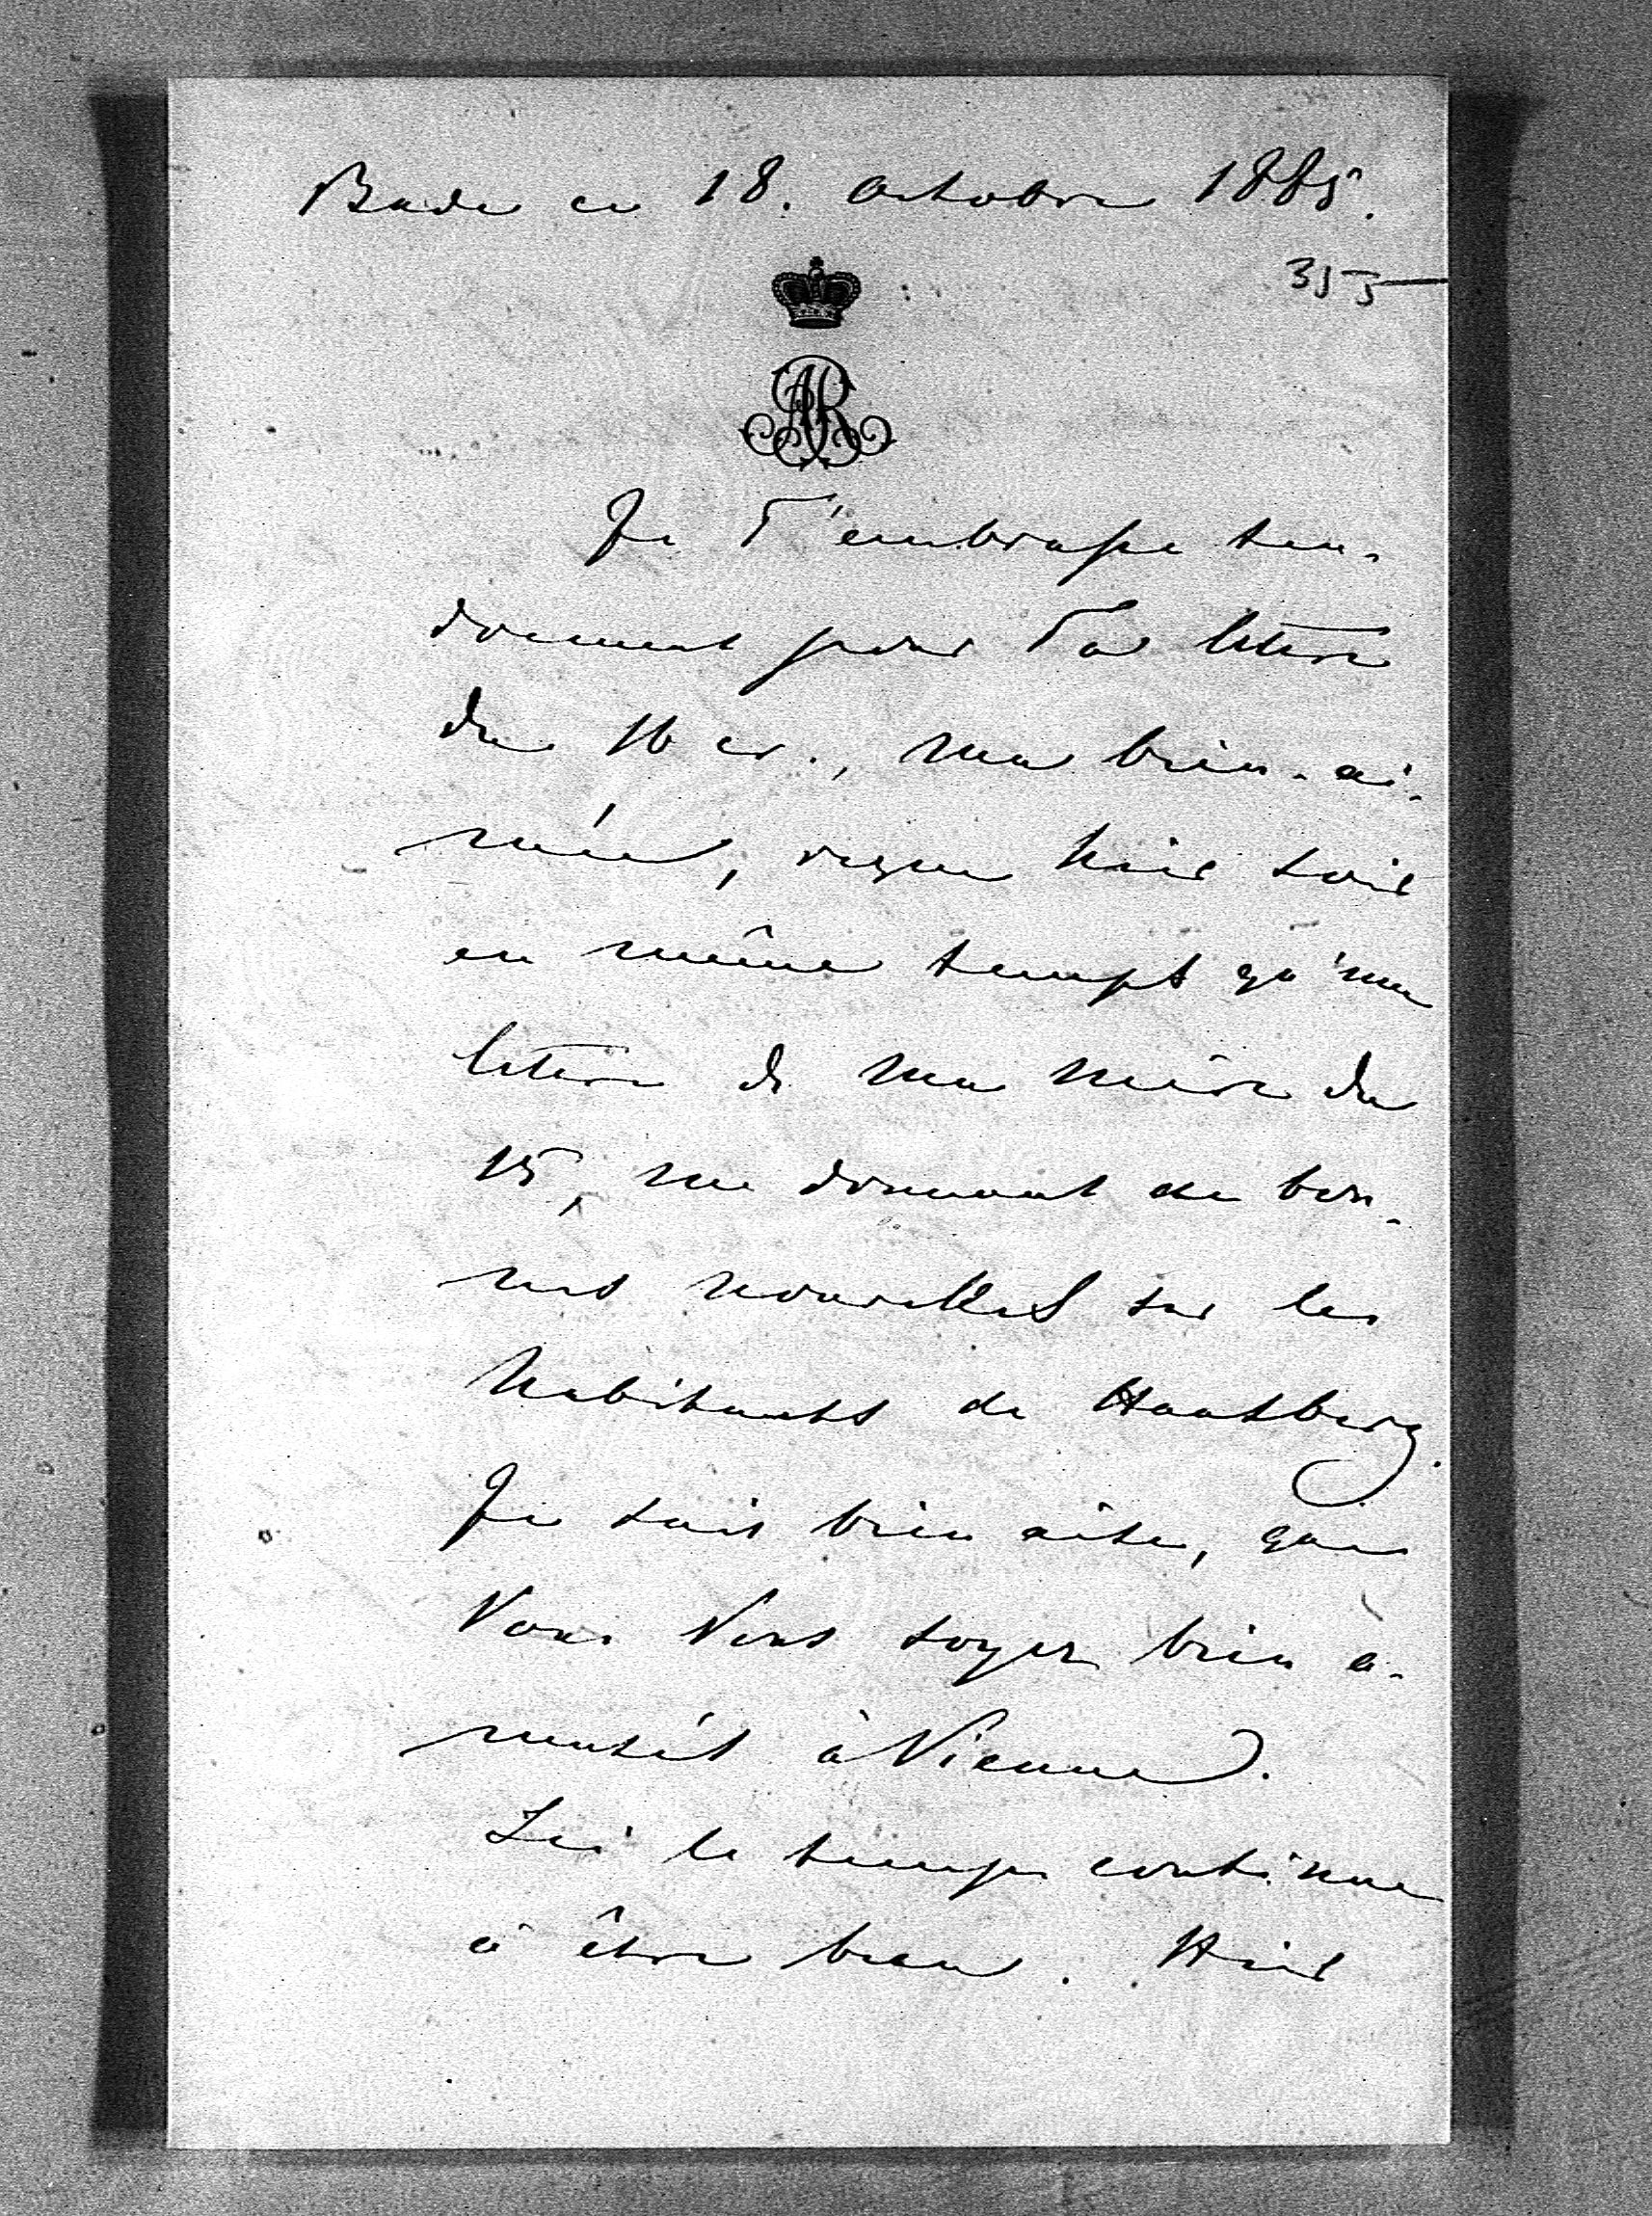 Bade ce 18. octobre 1885.
355
AR
Je T'embrasse ten-
drement pour Ta lettre
du 16 cr., ma bien-ai-
mée, reçue hier soir
en même temps qu'une
lettre de ma mère du
15, me donnant de bon-
nes nouvelles sur les
habitants de
Je suis bien aise, que
Vous Vous soyez bien a-
musés à Vienne.
Ici le temps continue
à être beau. Hier